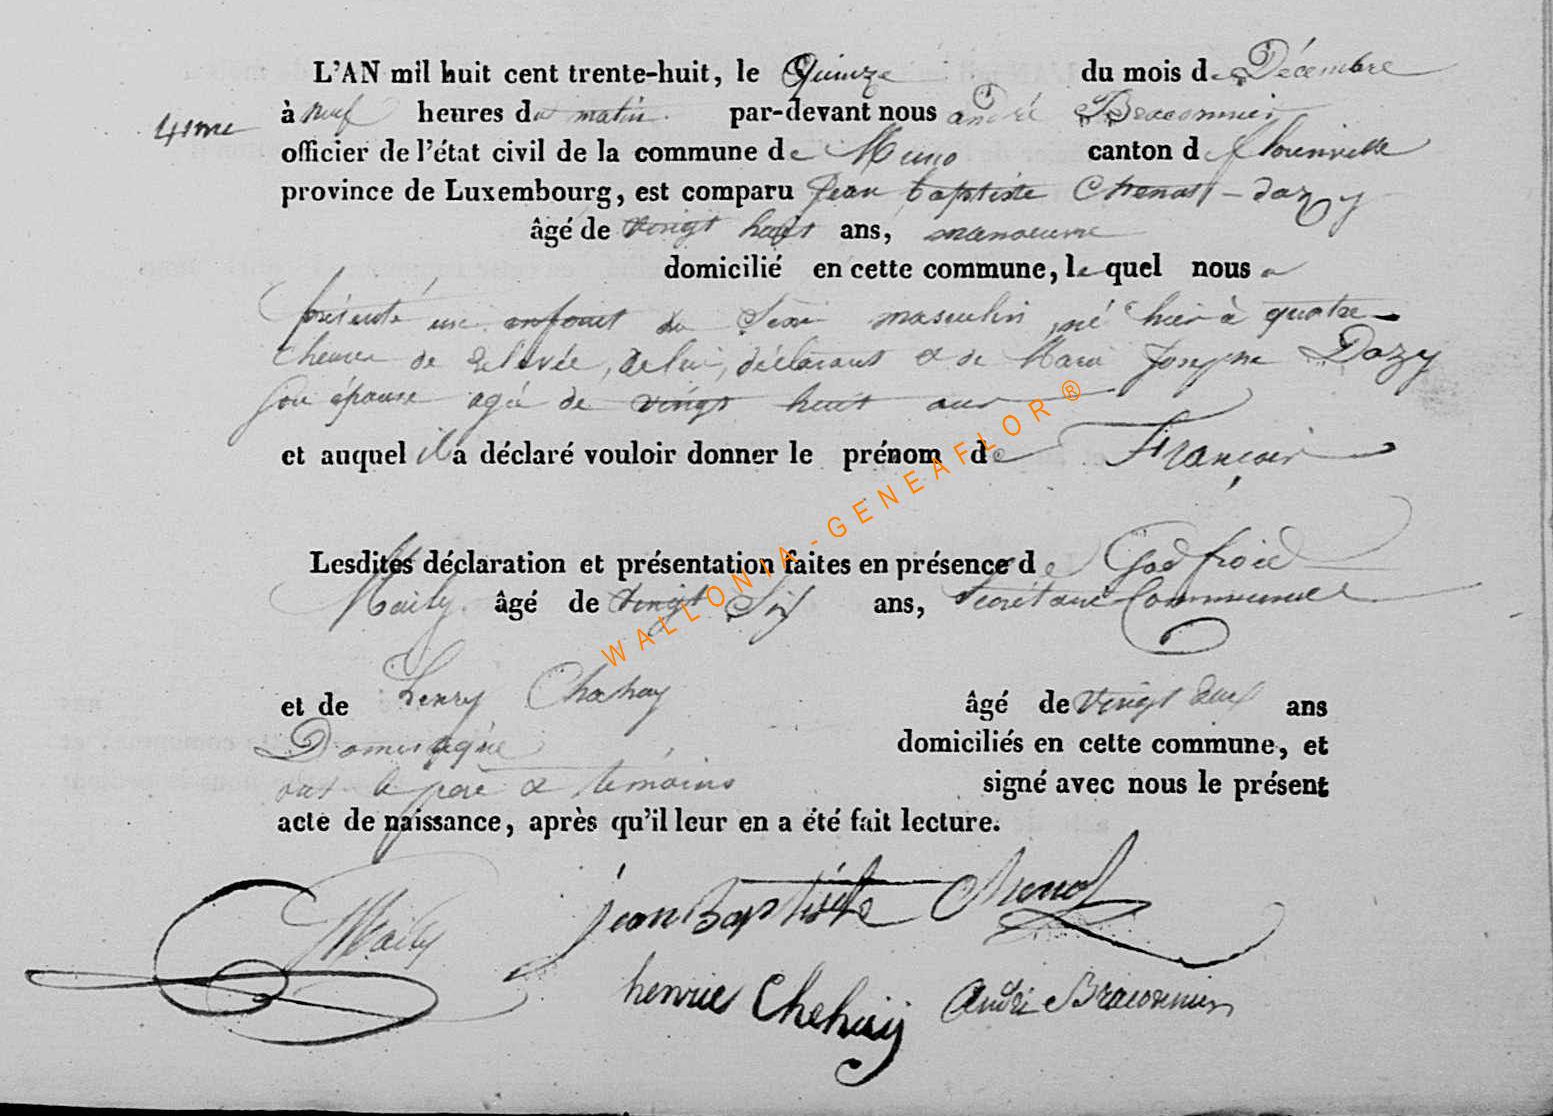 L'AN mil huit cent trente-huit, le Quinze du mois de Décembre
41me
à neuf heures du matin. par-devant nous andré Braconnier
officier de l'état civil de la commune de Muno canton de florenville
province de Luxembourg, est comparu Jean baptiste Chenot - dazy
âgé de vingt huit ans, manoeuvre
domicilié en cette commune, lequel nous a
présenté un enfant du Sexe masculin né hier à quatre
heures de relevée, de lui, déclarant et de Marie Josephe Dazy
Son épouse agée de vingt huit ans
et auquel il a déclaré vouloir donner le prénom de François
Lesdites déclaration et présentation faites en présence de Godfroid
Maily âgé de vingt Six ans, Secrétaire Communal
et de henry Chehay âgé de vingt deux ans
Domestique domiciliés en cette commune, et
ont le père et temoins signé avec nous le présent
acte de naissance, après qu'il leur en a été fait lecture.
Maily jean Baptiste Chenot
henrie Chehaij André Braconnier
WALLONIA-GENEAFLOR®